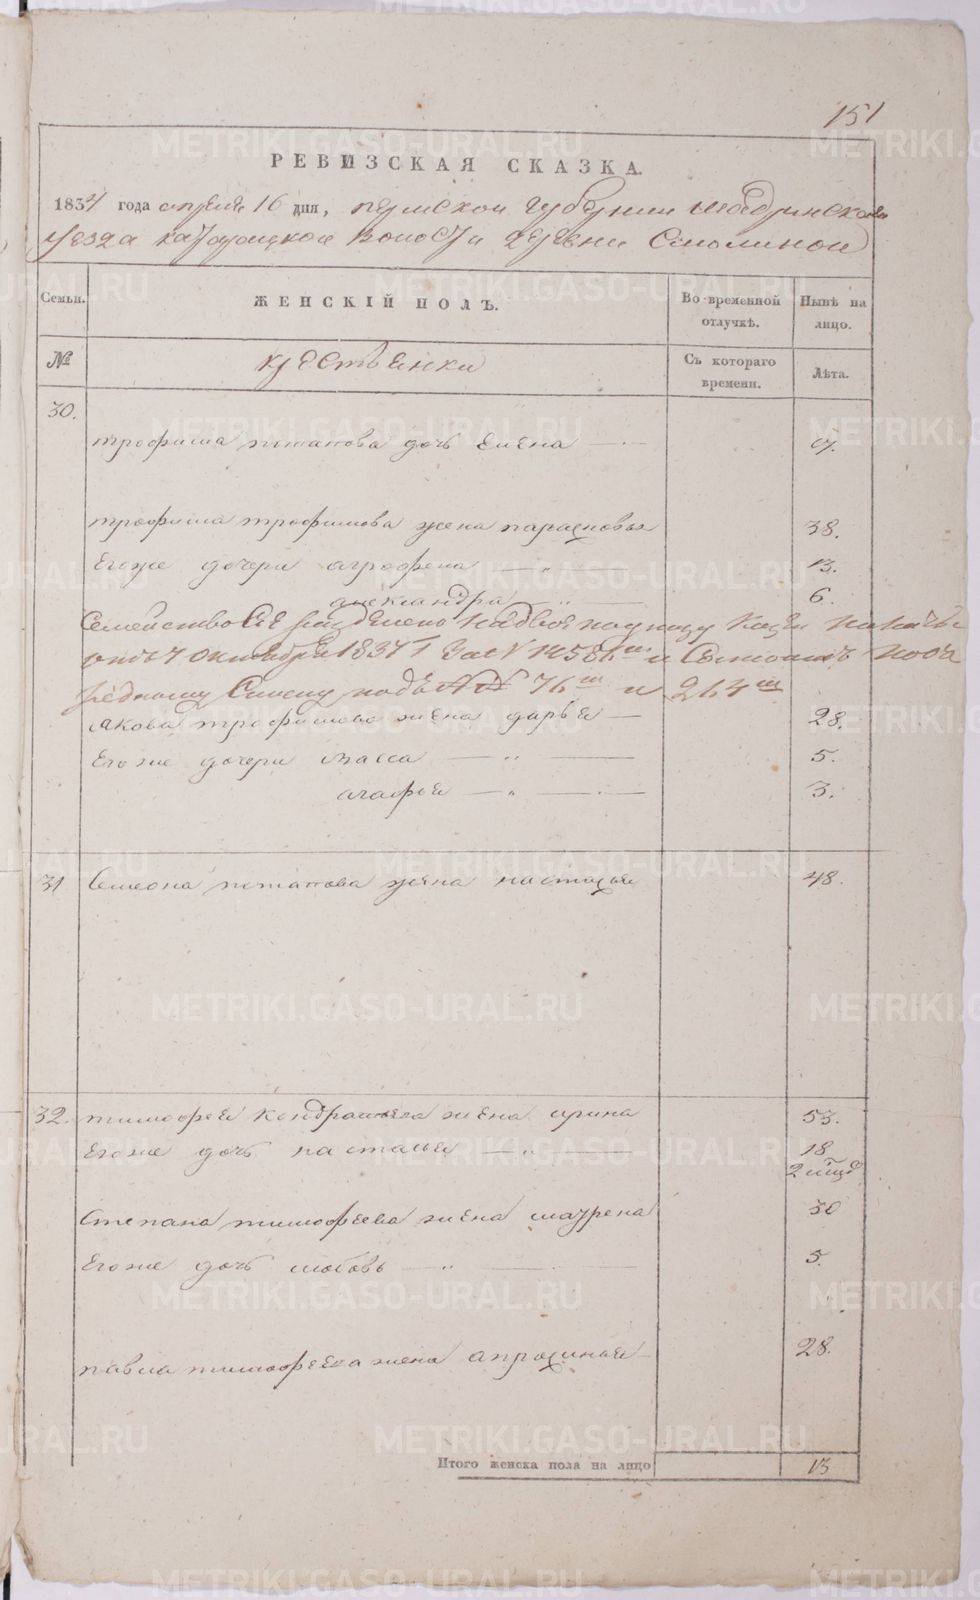 151
РЕВИЗСКАЯ СКАЗКА.
1834 года апреля 16 дня, пермской губернии шадринскова
уезда катаруцкой волости деревни Смолиной
Семьи. ЖЕНСКІЙ ПОЛЪ. Во временной отлучкѣ. Нынѣ на лицо.
№ крестьянки Съ котораго времени. Лѣта.
30.
трофима потапова дочь елена
трофима трофимова жена парасковья 38.
егоже дочери агрофена 13.
александра 6.
Семейство Сіе разделено надвое по указу
октября 1834 и
76 и 264
якова трофимова жена дарья 28.
егоже дочери васса 5.
агафья 3.
31 Семиона потапова жена настасья 48.
32. тимофея кондратьева жена ирина 53.
егоже дочь насталья 18
2
Степана тимофеева жена мавреna 30
егоже дочь любовь 5.
павла тимофеева жена апросинья 28.
Итого женска пола на лицо 13
METRIKI.GASO-URAL.RU